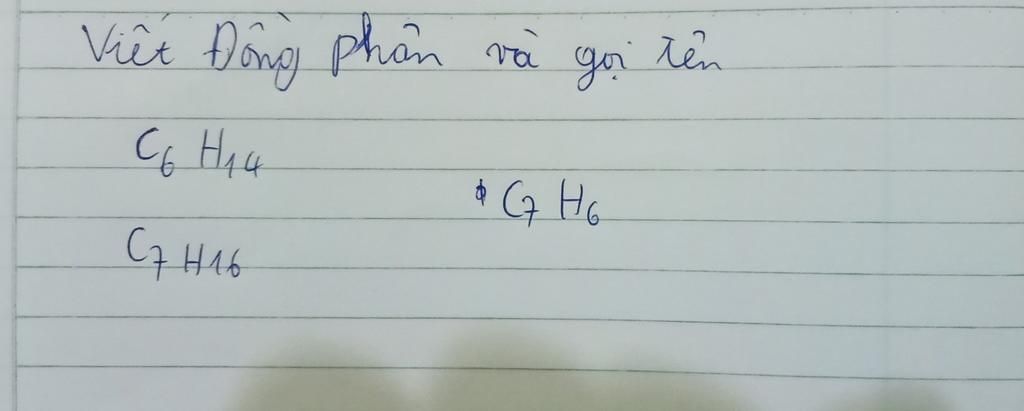 Viết Đồng phân và gọi tên
C₆ H₁₄
C₇ H₆
C₇ H16